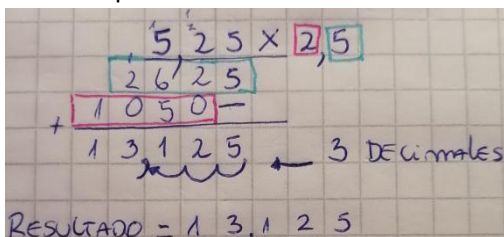 5,25 x 2,5
2625
+ 1050-
13125 ← 3 DECiMALES
RESULTADO = 13,125